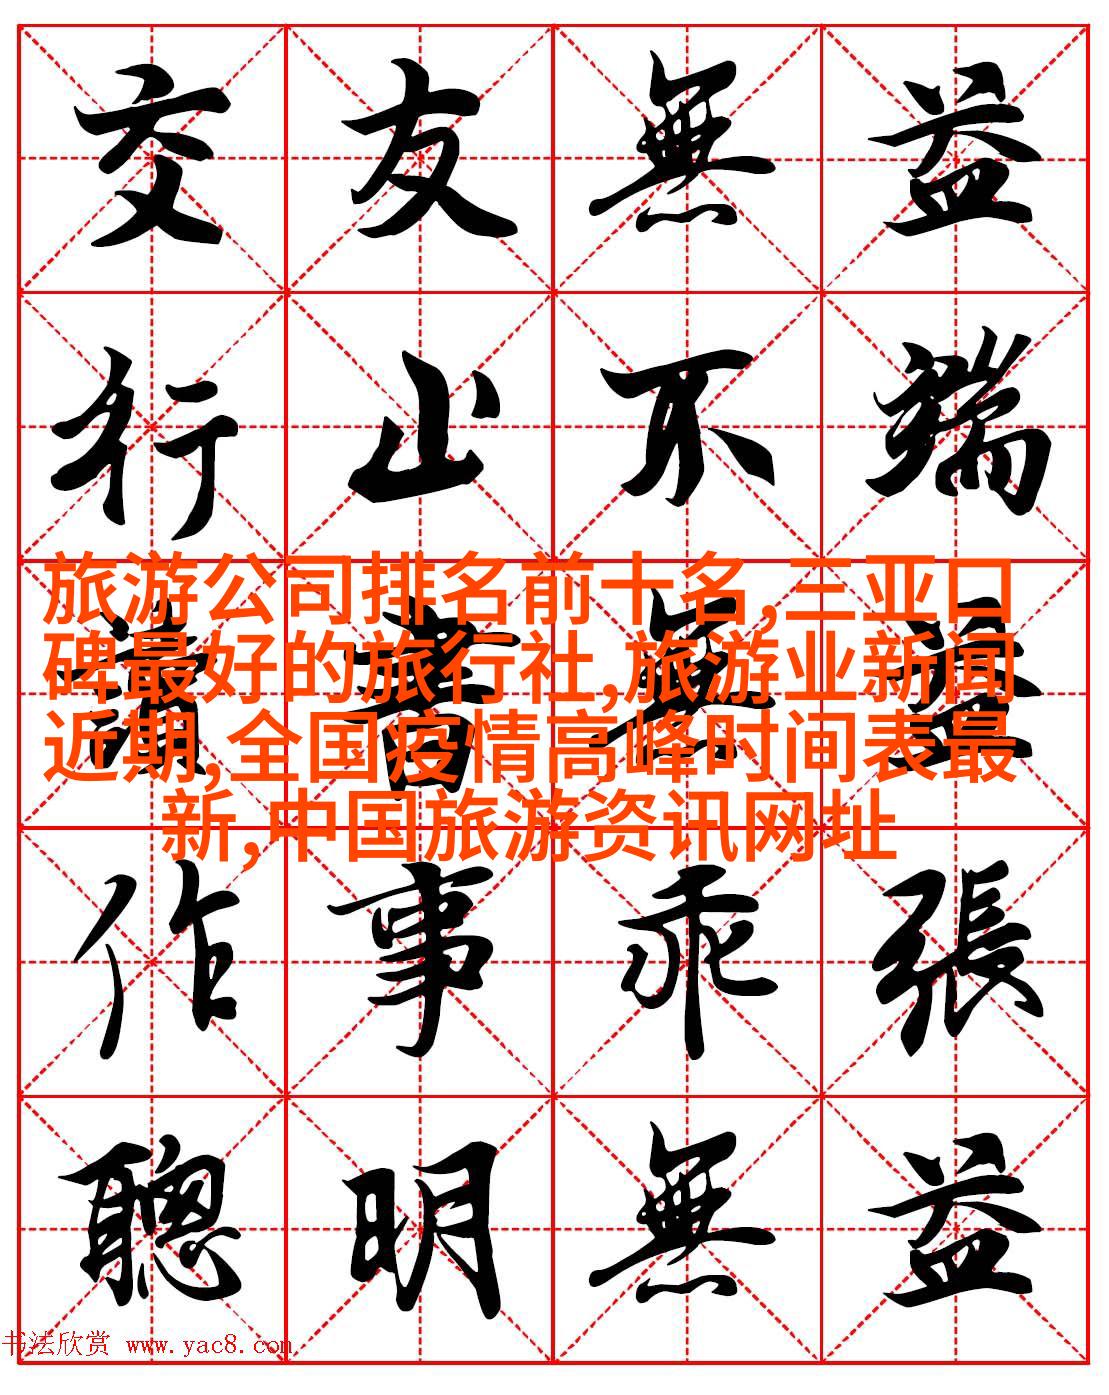 交友無益
行止不端
讀書無益
旅游公司排名前十名,三亚口
碑最好的旅行社,旅游业新闻
近期,全国疫情高峰时间表最
新,中国旅游资讯网址
作事乖張
聰明無益
书法欣赏 www.yac8.com